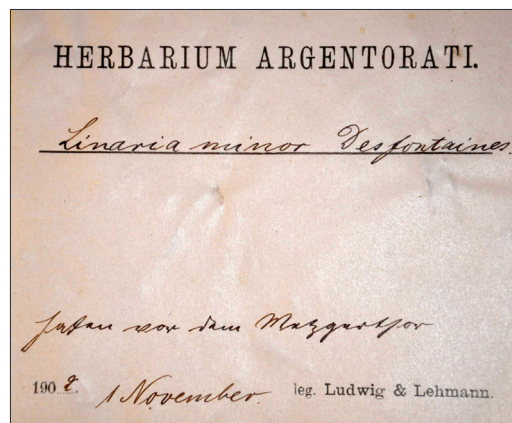 HERBARIUM ARGENTORATI.
Linaria minor Desfontaines.
Hafen vor dem Metzgerthor
190 . 1 November. leg. Ludwig & Lehmann.